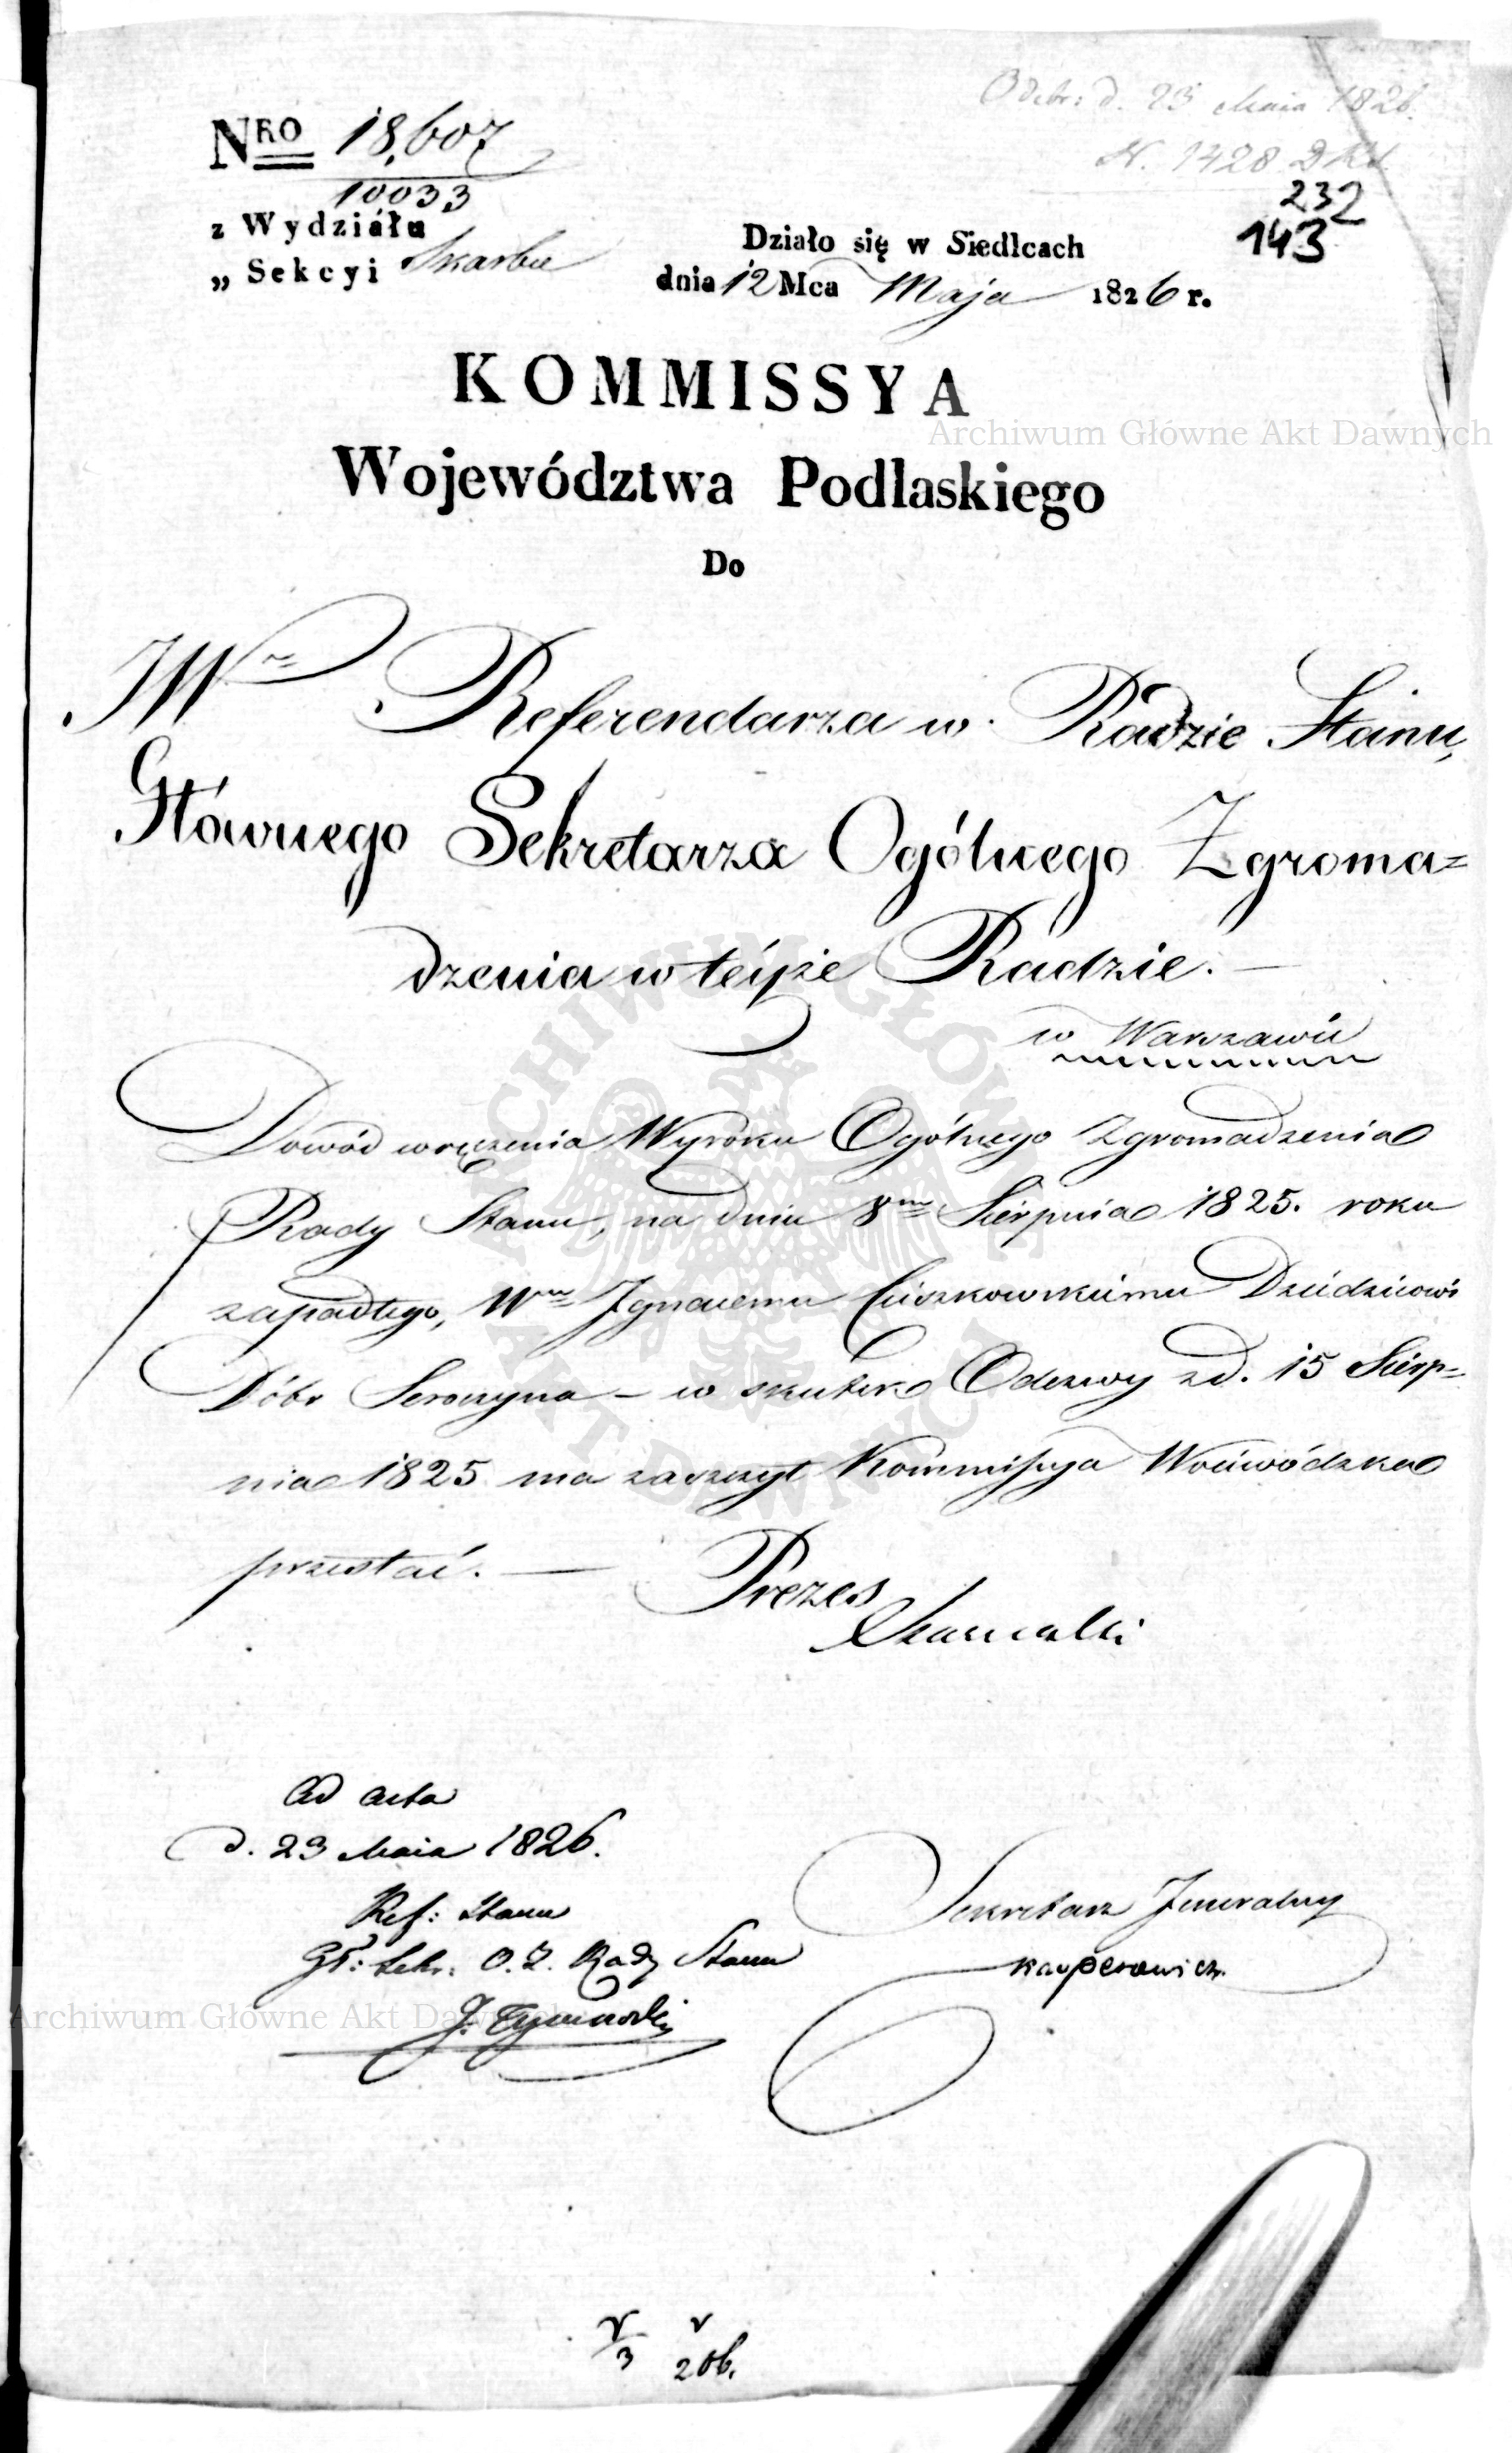 Odebr: d. 23 Maia 1826.
N. 1428 D Kl.
232
143
Nro 18,607
10033
z Wydziału
„ Sekcyi Skarbu
Działo się w Siedlcach
dnia 12 Mca Maja 1826 r.
KOMMISSYA
Archiwum Główne Akt Dawnych
Województwa Podlaskiego
Do
JWo Referendarza w Radzie Stanu,
Głównego Sekretarza Ogólnego Zgroma=
dzenia w teyże Radzie. —
w Warszawie
Dowód wręczenia Wyroku Ogólnego Zgromadzenia
Rady Stanu, na dniu 8mo Sierpnia 1825. roku
zapadłego, Wmu Ignacemu Cieszkowskiemu Dziedzicowi
Dóbr Seroczyna – w skutek Odezwy z d. 15 Sierp=
nia 1825 ma zaszczyt Kommissya Woiewódzka
przesłać. — Prezes
ad acta
d. 23 Maia 1826.
Ref: Stanu
Gł: Sekr. O. Z. Rady Stanu
J. Tymowski
Sekretarz Jeneralny
Kasperowicz
Archiwum Główne Akt Dawnych
ARCHIWUM GŁÓWNE AKT DAWNYCH
3 20b.